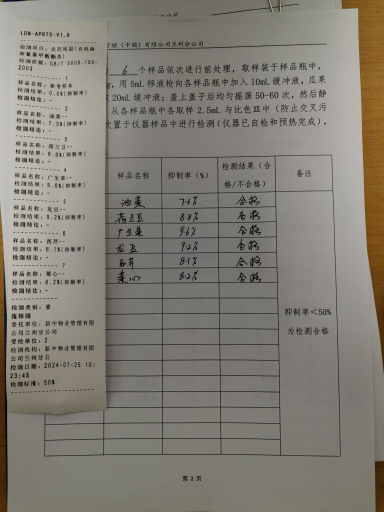 LDW-APRTS-V1.0
检测项目:农药残留(有机磷和氨基甲酸酯类)
检测依据:GB/T 5009.199-2003
1
样品名称:参考样本
检测结果:0.0%(抑制率)
检测结论:-
2
样品名称:油菜--
检测结果:7.3%(抑制率)
检测结论:-
3
样品名称:荷兰豆--
检测结果:8.8%(抑制率)
检测结论:-
4
样品名称:广生菜--
检测结果:9.6%(抑制率)
检测结论:-
5
样品名称:龙豆--
检测结果:9.2%(抑制率)
检测结论:-
6
样品名称:西芹--
检测结果:8.1%(抑制率)
检测结论:-
7
样品名称:菜心--
检测结果:8.2%(抑制率)
检测结论:-
检测类别:委
托检测
委托单位:新中物业管理有限公司兰州分公司
受检单位:2
检测机构:新中物业管理有限公司兰州分公
检测日期:2024-07-25 10:23:45
检测标准:50%
管理(中国)有限公司兰州分公司
6 个样品依次进行前处理,取样装于样品瓶中,
用 5mL 移液枪向各样品瓶中加入 10mL 缓冲液,瓜果
20mL 缓冲液;盖上盖子后均匀摇荡 50-60 次,然后静
从各样品瓶中各取样 2.5mL 与比色皿中(防止交叉污
放置于仪器样品中进行检测(仪器已自检和预热完成)。
样品名称 抑制率(%) 检测结果(合格/不合格) 备注
油菜 合格
荷兰豆 8.8% 合格
广生菜 9.6% 合格
龙豆 9.2% 合格
西芹 8.1% 合格
菜心 8.2% 合格
抑制率<50%
为检测合格
第 2 页